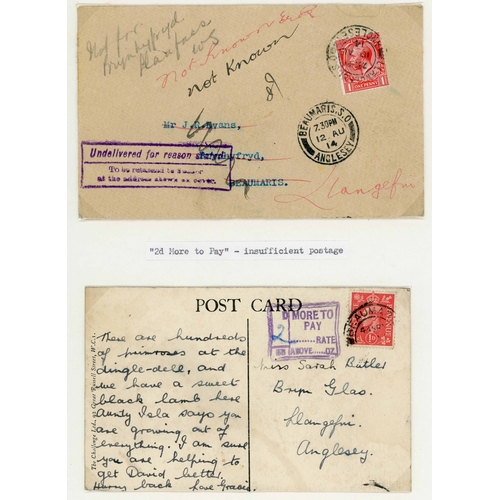 Not for
Mynhyfryd
Llanfaes
Not Known or Eval
not Known
Mr J.R.Evans,
Undelivered for reason stated
To be returned to Sender
at the address shewn on cover.
BEAUMARIS.
Llangefni
BEAUMARIS.S.O
7.30PM
12 AU
14
ANGLESEY
ONE PENNY
"2d More to Pay" - insufficient postage
POST CARD
D MORE TO
PAY
2 RATE
ABOVE OZ.
BEAUMARIS
There are hundreds
of primroses at the
dingle-dell, and
we have a sweet
black lamb here
Aunty Isla says you
are growing out of
everything. I am sure
you are helping to
get David better.
Hurry back love Grasie
Miss Sarah Butler
Bryn Glas.
Llangefni.
Anglesey.
The Challenge Ltd., 92 Great Russell Street, W.C.1.